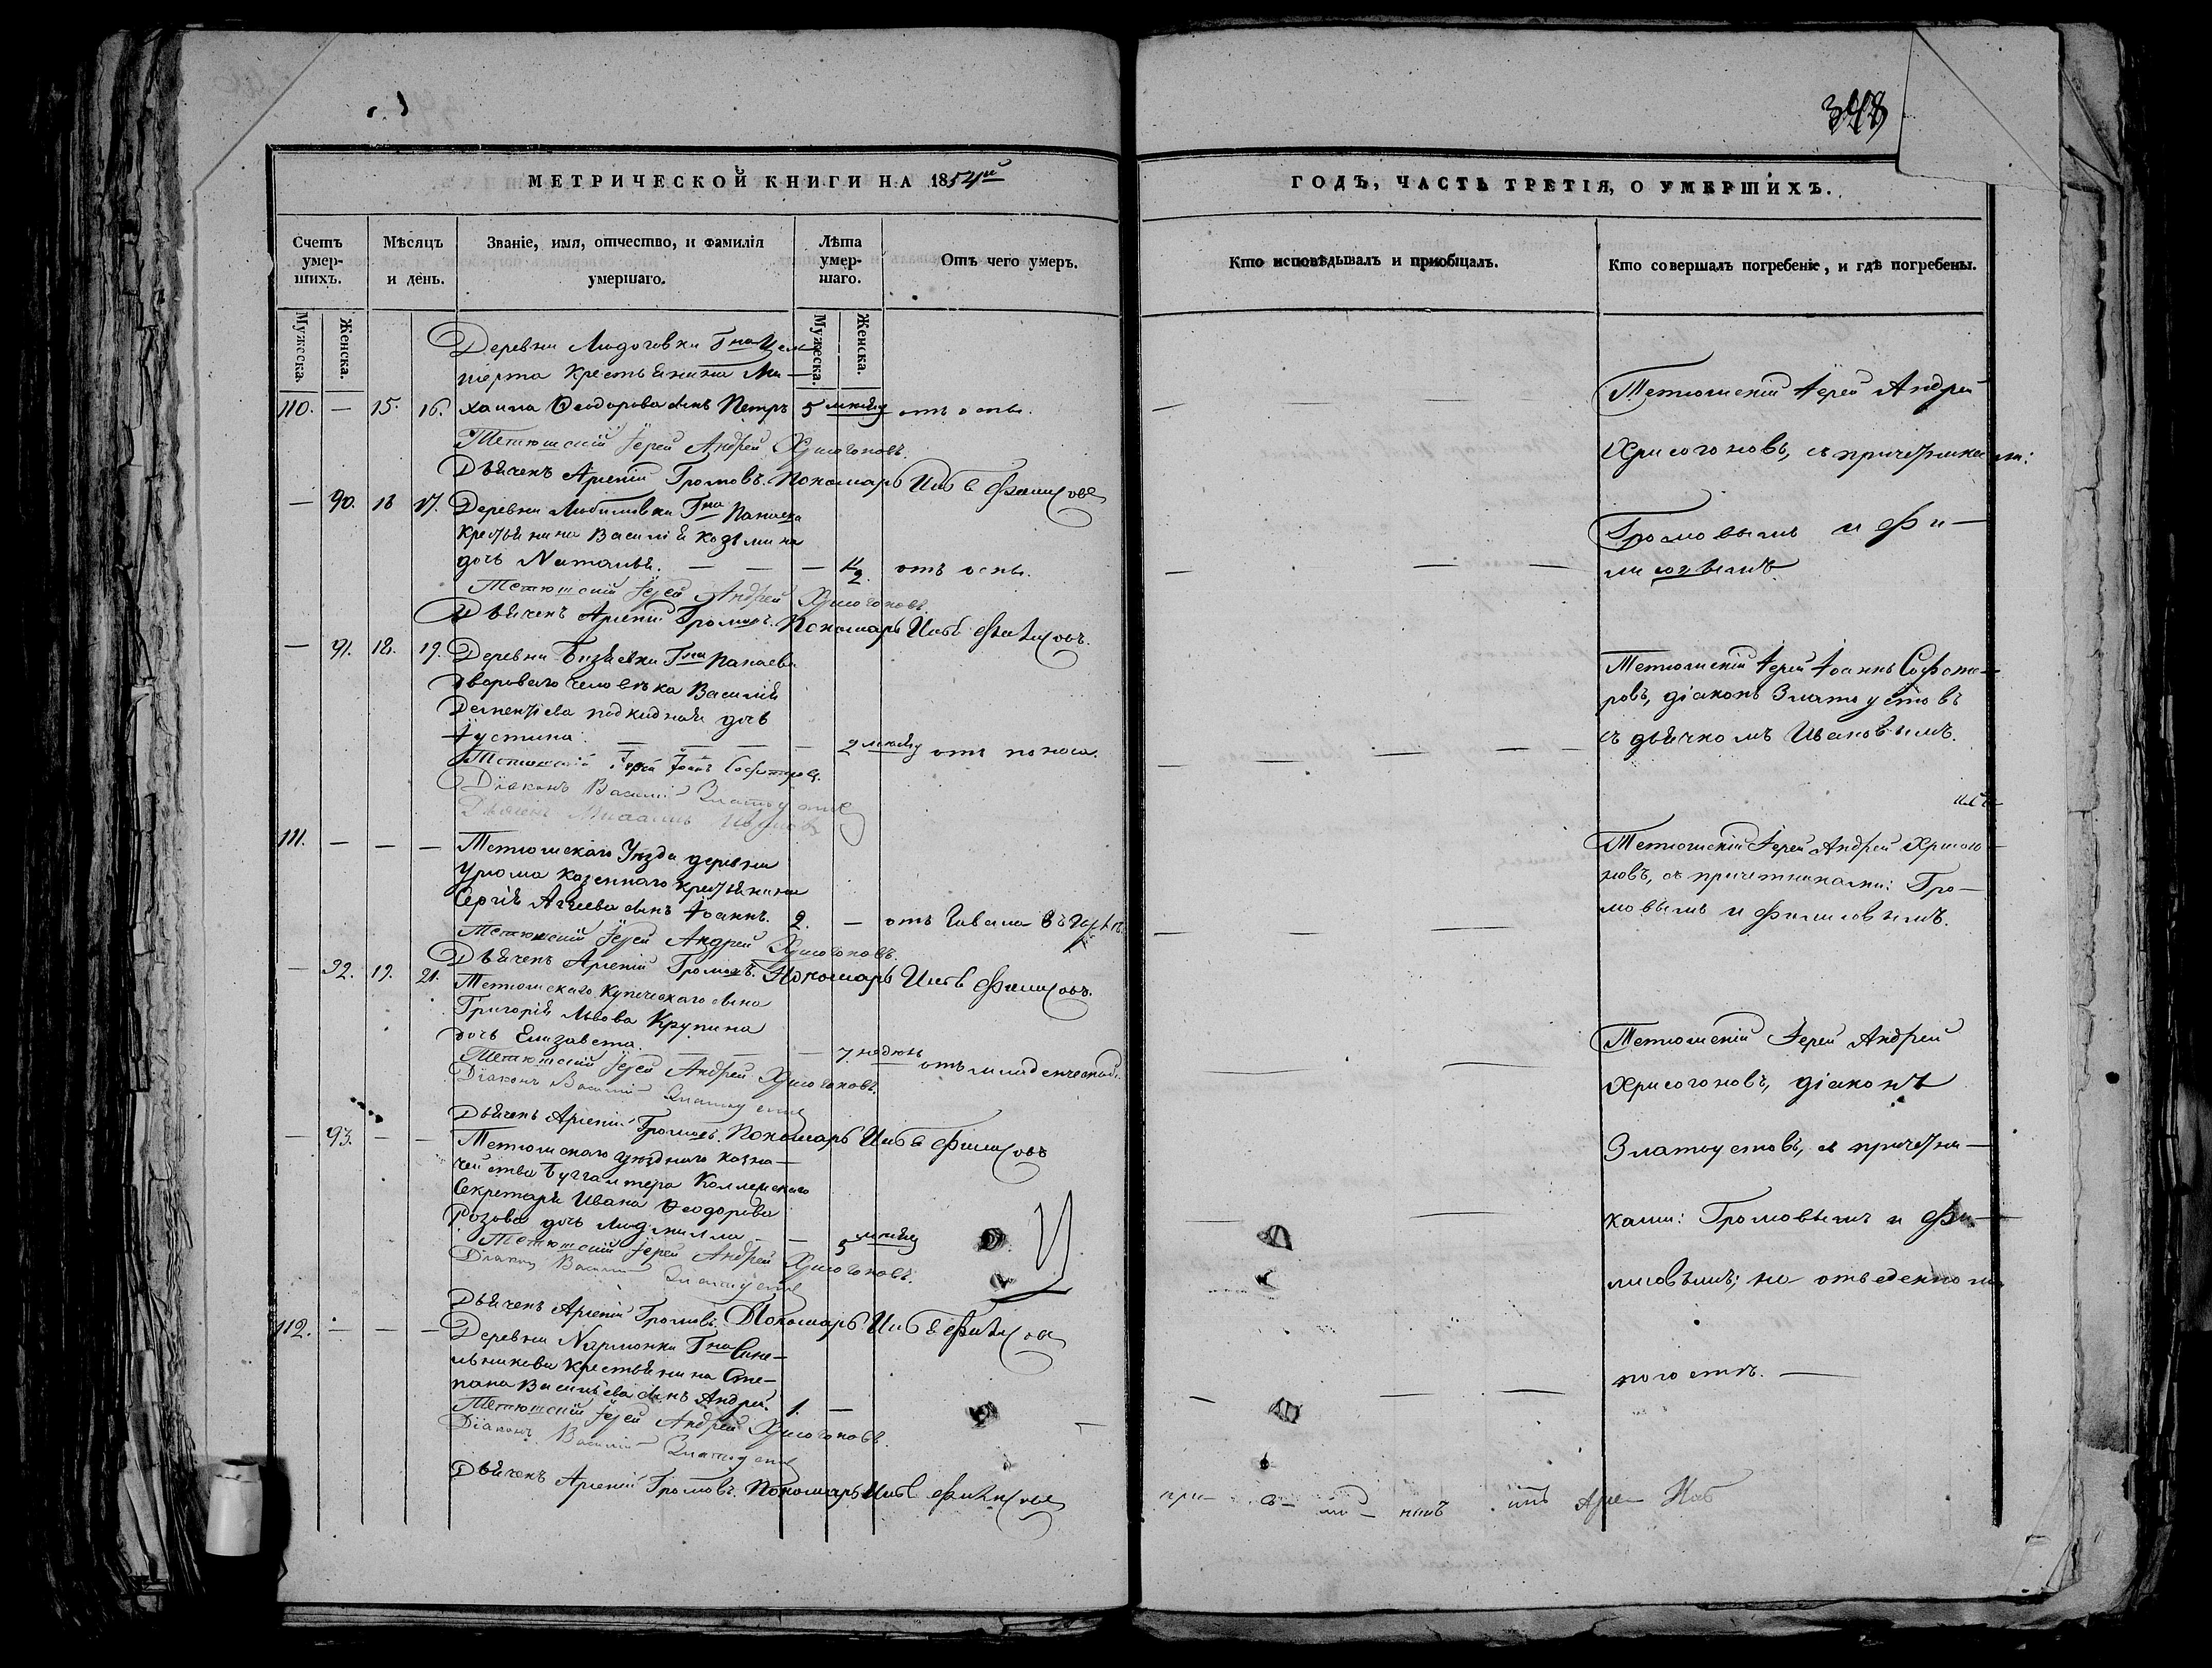 348
МЕТРИЧЕСКОЙ КНИГИ НА 1854й
ГОДЪ, ЧАСТЬ ТРЕТІЯ, О УМЕРШИХЪ.
Счетъ умер-шихъ.
Мѣсяцъ и день.
Званіе, имя, отчество, и фамилія умершаго.
Лѣта умер-шаго.
Отъ чего умеръ.
Кто исповѣдывалъ и пріобщалъ.
Кто совершалъ погребеніе, и гдѣ погребены.
Мужеска. Женска.
Мужеска. Женска.
Деревни Людоговки Гна
перта Крестьянина Ми-
110. — 15. 16. хаила Ѳеодорова сынъ Петръ 5 отъ оспы.
Тетюшскій Іерей Андрей Хрисогоновъ.
Дьячекъ Арсеній Громовъ. Пономарь Филисовъ
— 90. 16 17. Деревни Любимовки Гна Панаева
Крестьянина Василія Козьмина
дочь Наталья. — — — 1/2. отъ оспы.
Тетюшскій Іерей Андрей Хрисогоновъ.
Дьячекъ Арсеній Громовъ. Пономарь Филисовъ.
— 91. 18. 19. Деревни Бизяевки Гна Панаева
двороваго человѣка Василія
Дементіева подкидная дочь
Іустина. — — — — 2 отъ поноса.
Тетюшскій Іерей Іоаннъ Софотеровъ.
Діаконъ Василій Златоустовъ
Дьячекъ Михаилъ Ивановъ
111. — — — Тетюшскаго Уѣзда деревни
Урюма казеннаго крестьянина
Сергія Агѣева сынъ Іоаннъ. 2. — отъ
Тетюшскій Іерей Андрей Хрисогоновъ.
Дьячекъ Арсеній Громовъ. Пономарь Филисовъ.
— 92. 19. 21. Тетюшскаго Купеческаго сына
Григорія Львова Крупина
дочь Елизавета. — — 7. недѣль отъ младенческой.
Тетюшскій Іерей Андрей Хрисогоновъ.
Діаконъ Василій Златоустовъ
Дьячекъ Арсеній Громовъ. Пономарь Филисовъ
— 93. — — Тетюшскаго уѣзднаго казна-
чейства Бухгалтера Коллежскаго
Секретаря Ивана Ѳеодорова
Розова дочь Людмилла — — 5
Тетюшскій Іерей Андрей Хрисогоновъ.
Діаконъ Василій Златоустовъ
Дьячекъ Арсеній Громовъ. Пономарь Филисовъ
112. — — — Деревни Нармонки Гна Сине-
льникова крестьянина Сте-
пана Васильева сынъ Андрей. 1. —
Тетюшскій Іерей Андрей Хрисогоновъ.
Діаконъ Василій Златоустовъ
Дьячекъ Арсеній Громовъ. Пономарь Филисовъ
Тетюшскій Іерей Андрей
Хрисогоновъ, съ причетниками:
Громовымъ и Фи-
лисовымъ.
Тетюшскій Іерей Іоаннъ Софоте-
ровъ, діаконъ Златоустовъ
съ дьячкомъ Ивановымъ.
Тетюшскій Іерей Андрей Хрисого-
новъ, съ причетниками: Гро-
мовымъ и Филисовымъ.
Тетюшскій Іерей Андрей
Хрисогоновъ, діаконъ
Златоустовъ, съ причетни-
ками: Громовымъ и Фи-
лисовымъ; на отведенномъ
погостѣ. —